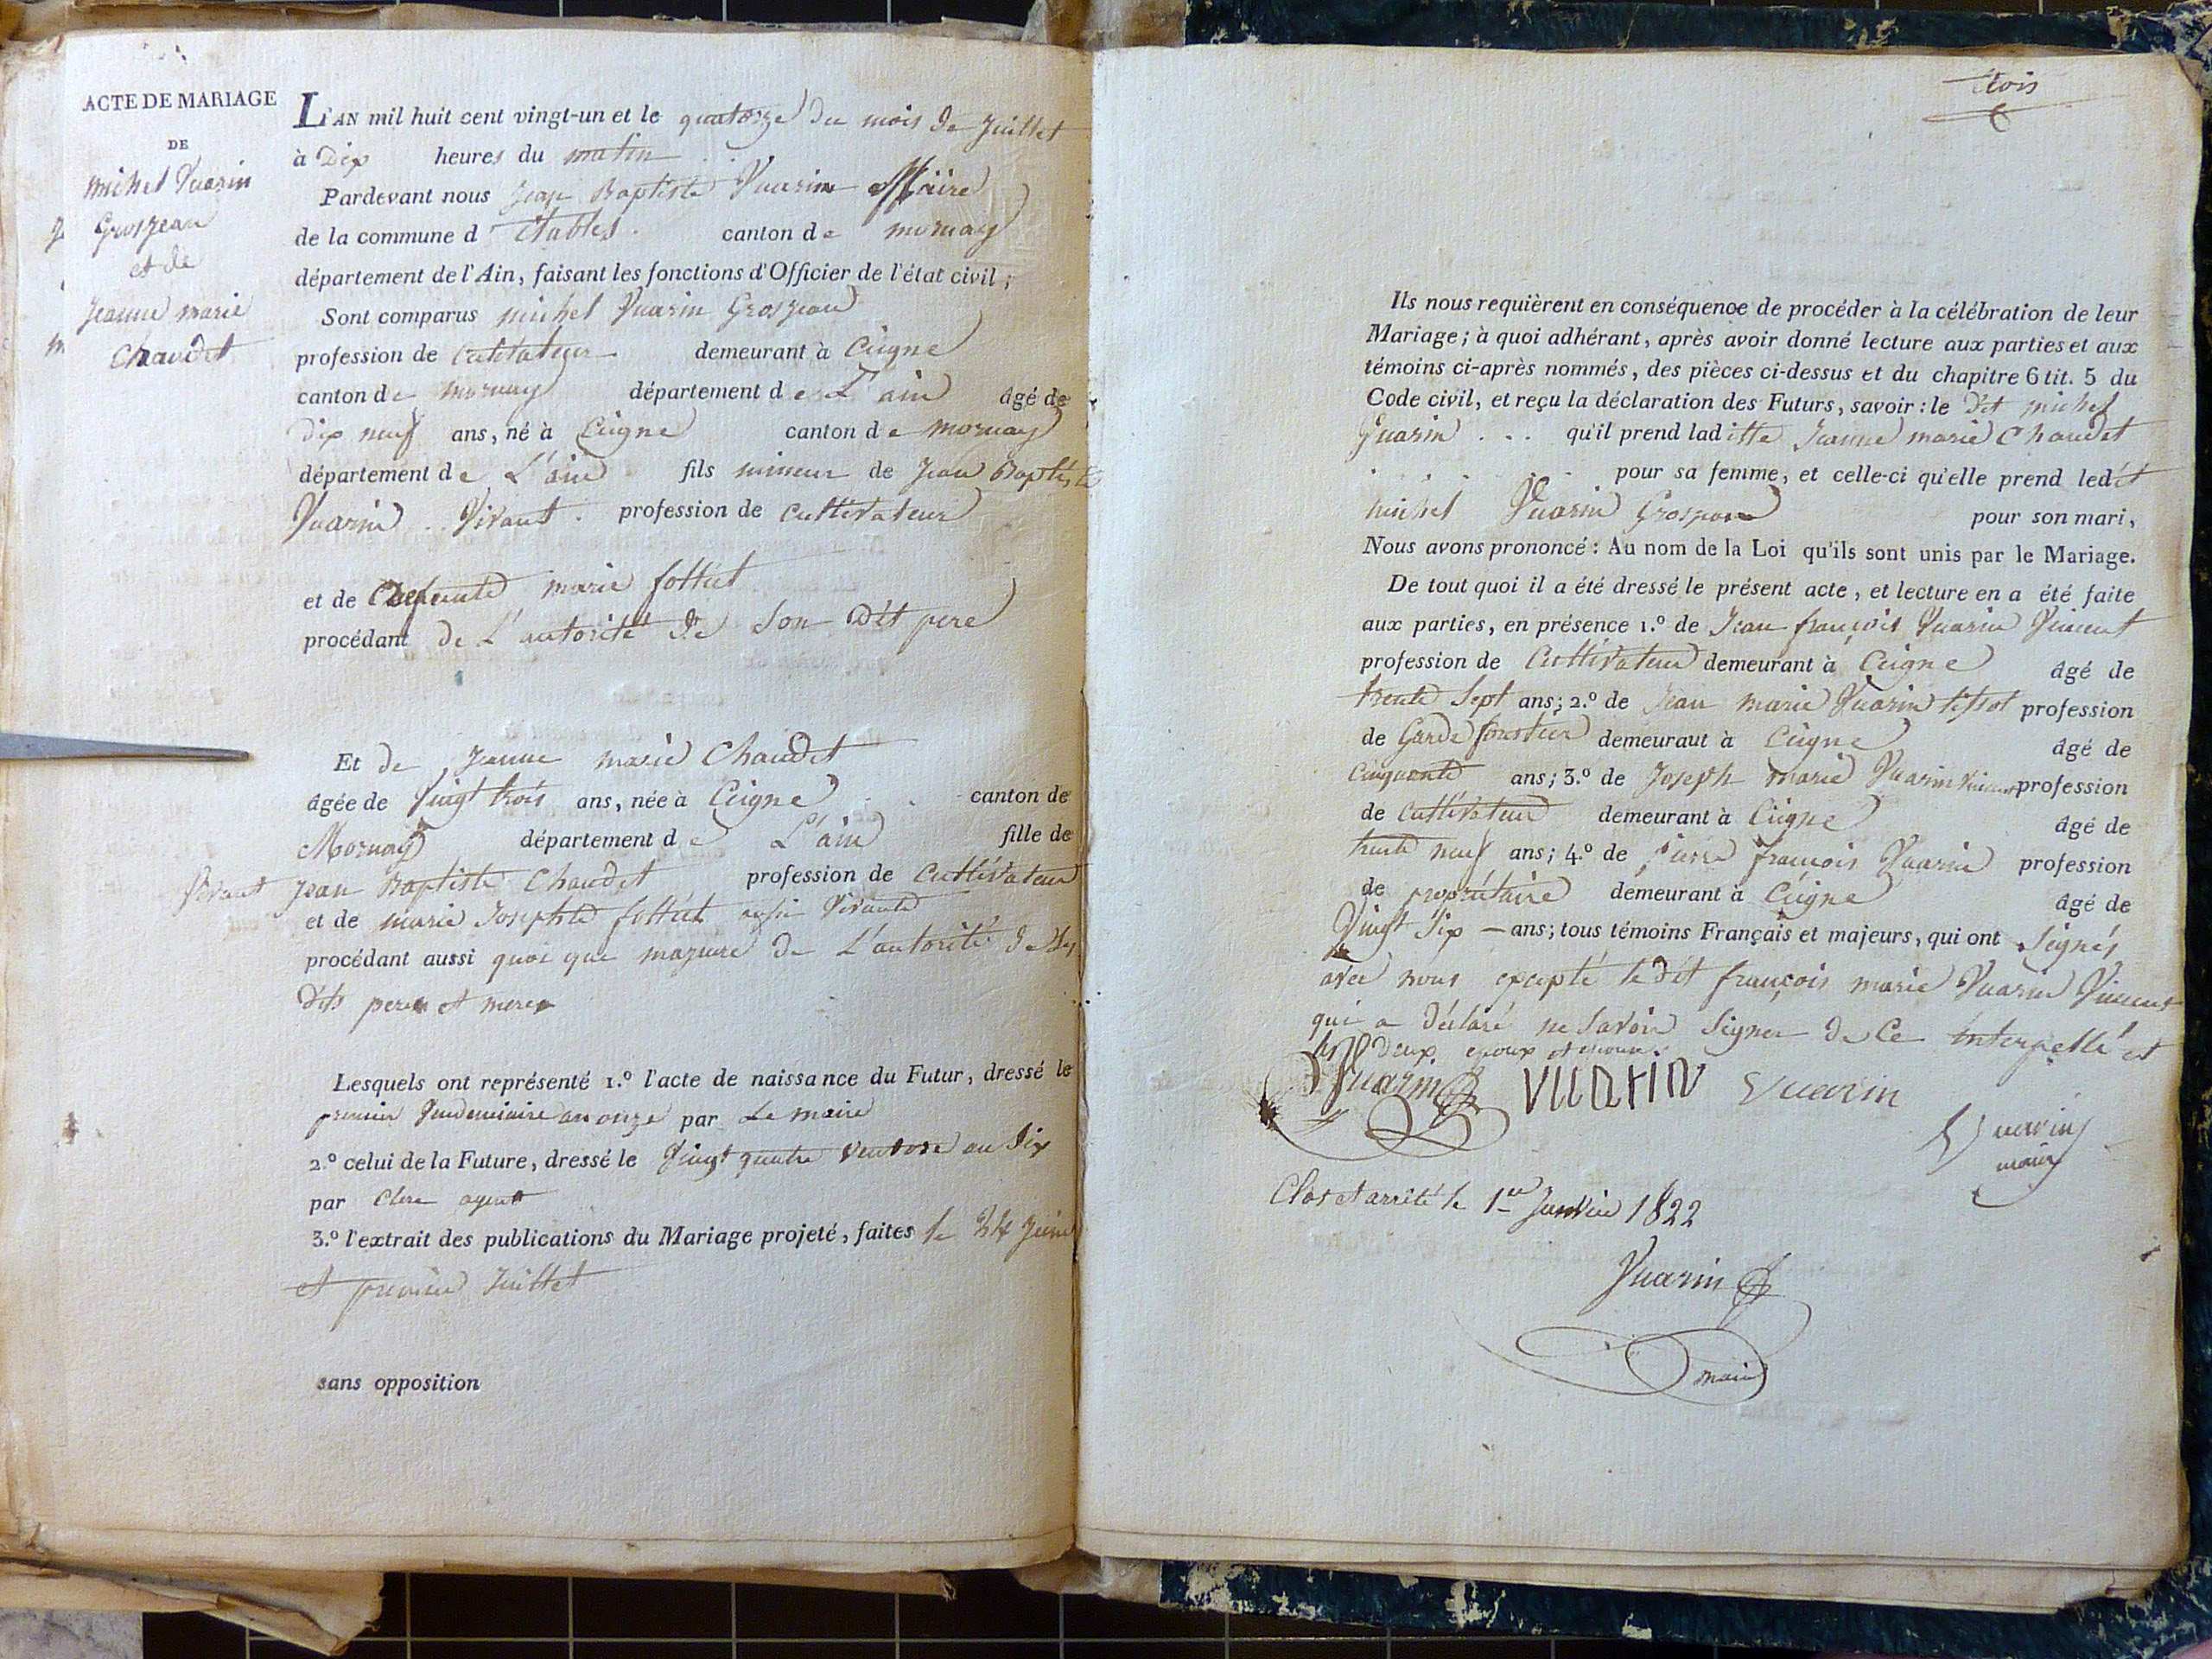 ACTE DE MARIAGE
DE
michel Vuarin
Grosjean
et de
Jeanne marie
Chaudet
L'AN mil huit cent vingt-un et le quatorze du mois de Juillet
à Dix heures du matin
Pardevant nous Jean Baptiste Vuarin Maire
de la commune d'Etables canton de mornay
département de l'Ain, faisant les fonctions d'Officier de l'état civil;
Sont comparus michel Vuarin Grosjean
profession de Cultivateur demeurant à Ceigne
canton de mornay département de L'ain âgé de
dix neuf ans, né à Ceigne canton de mornay
département de L'ain fils mineur de Jean Baptiste
Vuarin Vivant profession de Cultivateur
et de Defunte marie follict
procédant de L'autorité de Son Dit pere
Et de Jeanne marie Chaudet
âgée de Vingt trois ans, née à Ceigne canton de
Mornay département de L'ain fille de
Vivant Jean Baptiste Chaudet profession de Cultivateur
et de marie Josephte folliet aussi Vivante
procédant aussi quoi que majeure de L'autorité de Ses
Dits peres et meres
Lesquels ont représenté 1.º l'acte de naissance du Futur, dressé le
premier Vendemiaire an onze par Le maire
2.º celui de la Future, dressé le Vingt quatre Ventose an Six
par Clere agent
3.º l'extrait des publications du Mariage projeté, faites le 24 Juin
et premier Juillet
sans opposition
trois
Ils nous requièrent en conséquence de procéder à la célébration de leur
Mariage; à quoi adhérant, après avoir donné lecture aux parties et aux
témoins ci-après nommés, des pièces ci-dessus et du chapitre 6 tit. 5 du
Code civil, et reçu la déclaration des Futurs, savoir: le Dit michel
Vuarin . . . qu'il prend laditte Jeanne marie Chaudet
pour sa femme, et celle-ci qu'elle prend ledit
michel Vuarin Grosjean pour son mari,
Nous avons prononcé: Au nom de la Loi qu'ils sont unis par le Mariage.
De tout quoi il a été dressé le présent acte, et lecture en a été faite
aux parties, en présence 1.º de Jean françois Vuarin Vincent
profession de Cultivateur demeurant à Ceigne âgé de
trente Sept ans; 2.º de Jean marie Vuarin tissot profession
de Garde forestier demeuraut à Ceigne âgé de
Cinquante ans; 3.º de Joseph marie Vuarin Vincent profession
de Cultivateur demeurant à Ceigne âgé de
trente neuf ans; 4.º de pierre françois Vuarin profession
de propriétaire demeurant à Ceigne âgé de
Vingt Six — ans; tous témoins Français et majeurs, qui ont Signés
avec nous excepté le dit françois marie Vuarin Vincent
qui a déclaré ne Savoir Signer de Ce interpellé et
les deux epoux
Vuarin VUARIN Vuarin
Vuarin
maire
Clos et arrêté le 1er Janvier 1822
Vuarin
maire